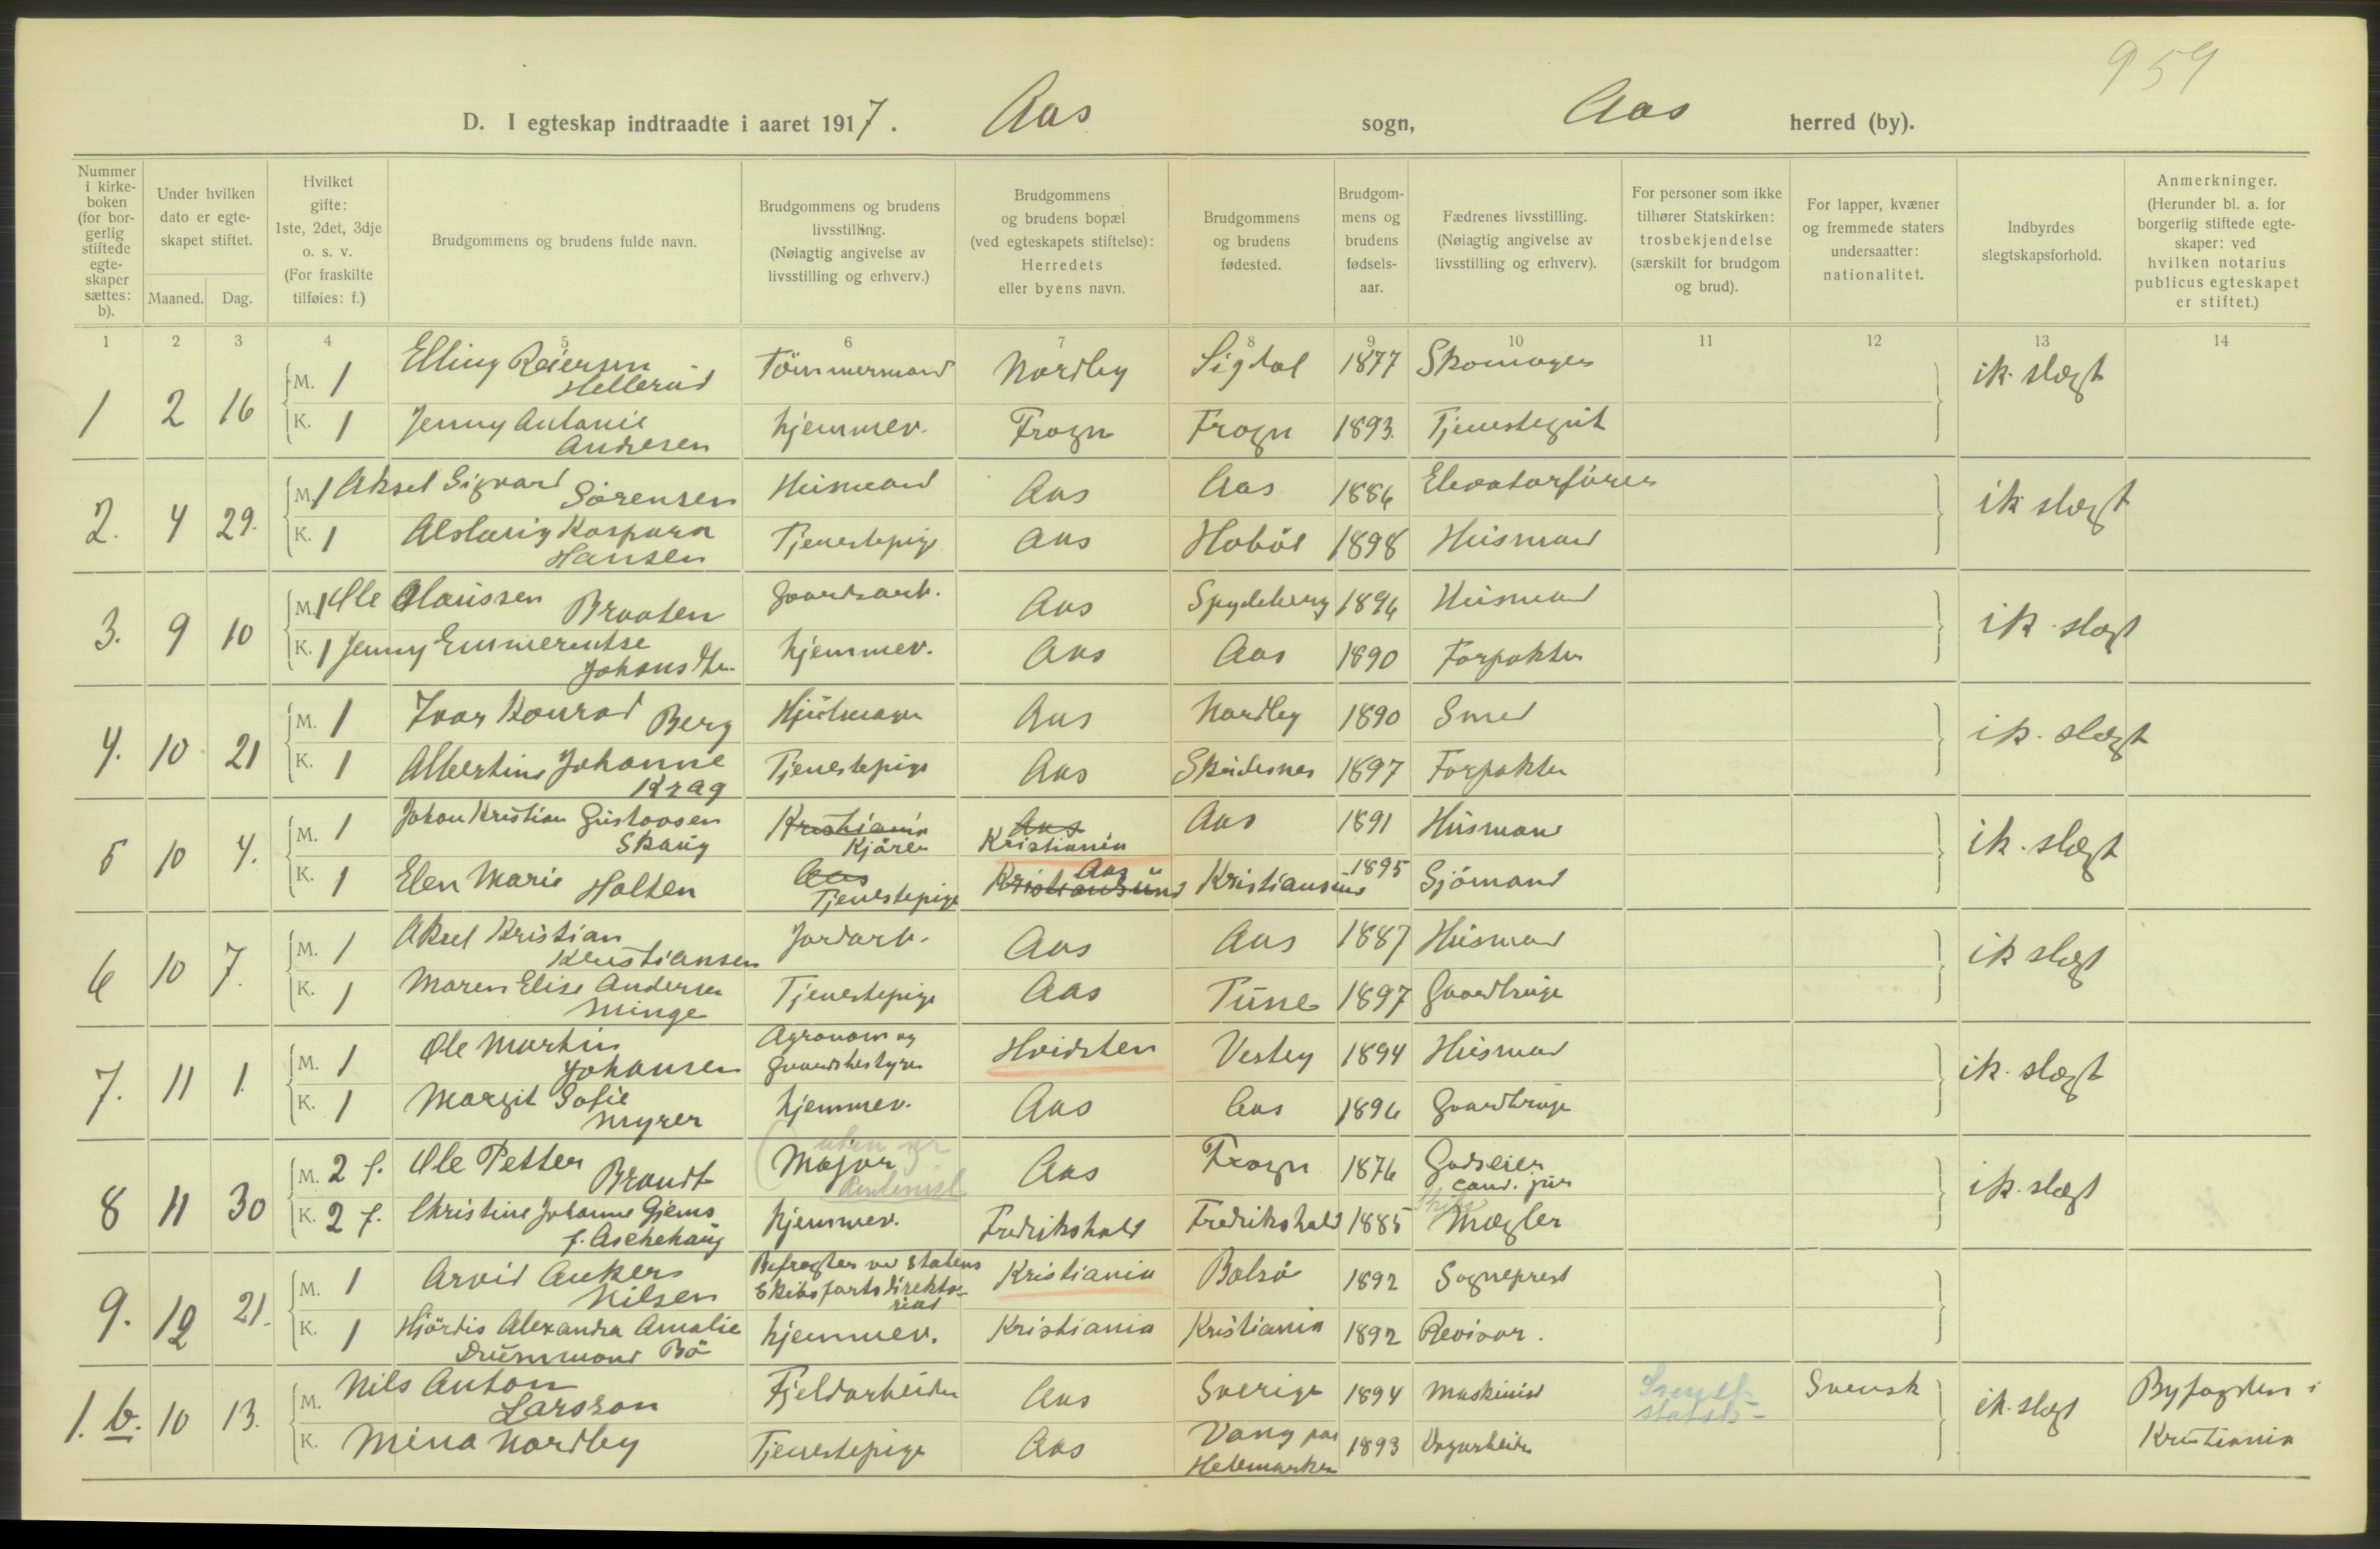 959
D. I egteskap indtraadte i aaret 1917. Aas sogn, Aas herred (by).
Nummer i kirke-boken (for bor-gerlig stiftede egte-skaper sættes: b).
Under hvilken dato er egte-skapet stiftet.
Maaned. Dag.
Hvilket gifte: 1ste, 2det, 3dje o. s. v. (For fraskilte tilføies: f.)
Brudgommens og brudens fulde navn.
Brudgommens og brudens livsstilling. (Nøiagtig angivelse av livsstilling og erhverv.)
Brudgommens og brudens bopæl (ved egteskapets stiftelse): Herredets eller byens navn.
Brudgommens og brudens fødested.
Brudgom-mens og brudens fødsels-aar.
Fædrenes livsstilling. (Nøiagtig angivelse av livsstilling og erhverv).
For personer som ikke tilhører Statskirken: trosbekjendelse (særskilt for brudgom og brud).
For lapper, kvæner og fremmede staters undersaatter: nationalitet.
Indbyrdes slegtskapsforhold.
Anmerkninger. (Herunder bl. a. for borgerlig stiftede egte-skaper: ved hvilken notarius publicus egteskapet er stiftet.)
1 2 3 4 5 6 7 8 9 10 11 12 13 14
1 2 16 M. 1 Elling Reiersen Hellerud Tömmermand Nordby Sigdal 1877 Skomager ik. slægt
K. 1 Jenny Antonie Andresen hjemmev. Frogn Frogn 1893. Tjenestegut
2. 4 29. M. 1 Aksel Sigvard Sørensen Husmand Aas Aas 1886 Elevatorfører ik slægt
K. 1 Aslaug Kaspara Hansen Tjenestepige Aas Hobøl 1898 Husmand
3. 9 10 M. 1 Ole Olaussen Braaten Gaardsarb. Aas Spydeberg 1896 Husmand ik. slægt
K. 1 Jenny Emmerentse Johansdtr. hjemmev. Aas Aas 1890 Forpakter
4. 10 21 M. 1 Ivar Konrad Berg Hjulmager Aas Nordby 1890 Smed ik. slægt
K. 1 Albertine Johanne Krag Tjenestepige Aas Skudesnes 1897 Forpakter
5 10 4. M. 1 Johan Kristian Gustavsen Skaug Kristiania Kjører Aas Kristiania Aas 1891 Husmand ik. slægt
K. 1 Elen Marie Holten Aas Tjenestepige Kristiansund Aas Kristiansund 1895 Sjømand
6 10 7. M. 1 Aksel Kristian Kristiansen Jordarb. Aas Aas 1887 Husmand ik slægt
K. 1 Maren Elise Andersen Minge Tjenestepige Aas Tune 1897 Gaardbruge
7. 11 1. M. 1 Ole Martin Johansen Agronom og Gaardsbestyrer Hvidsten Vestby 1894 Husmand ik. slægt
K. 1 Margit Sofie Myrer hjemmev. Aas Aas 1896 Gaardbruge
8 11 30 M. 2 f. Ole Petter Brandt Major Rentenist Aas Frogn 1876 Godseier cand. jur ik. slægt
K. 2 f. Christine Johanne Gjems f. Aschehaug hjemmev. Fredrikshald Fredrikshald 1885 Skibs Mægler
9. 12 21. M. 1 Arvid Ankers Nilsen Befragter ved Statens Skibsfartsdirektoriat Kristiania Bolsø 1892 Sogneprest
K. 1 Hjördis Alexandra Amalie Drummond Bö hjemmev. Kristiania Kristiania 1892 Revisor.
1. b. 10 13. M. Nils Anton Larsson Fjeldarbeider Aas Sverige 1894 Maskinist Svensk ik. slægt Byfogden i
K. Mina Nordby Tjenestepige Aas Vang paa Hedemarken 1893 Kristiania